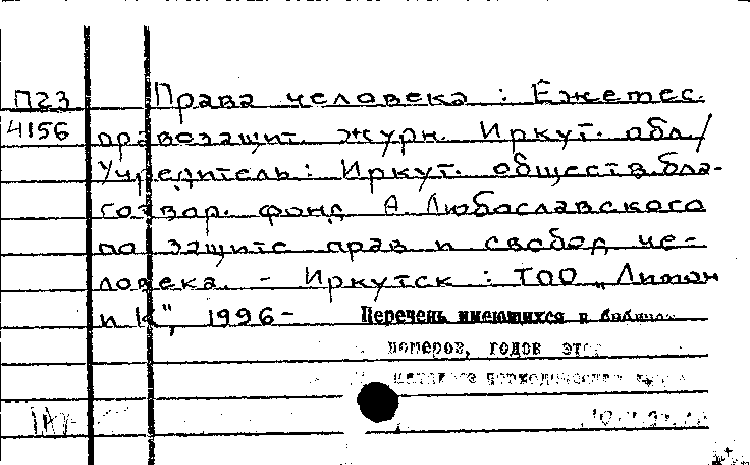 П23 Права человека : Ежемес.
4156 правезащит. журн. Иркут. обл. /
Учредитель : Иркут. обществ. бла-
готвор. фонд А. Любославского
по защите прав и свобод че-
ловека. - Иркутск : ТОО „Литон
и К", 1996 -
Перечень имеющихся в
номеров, годов